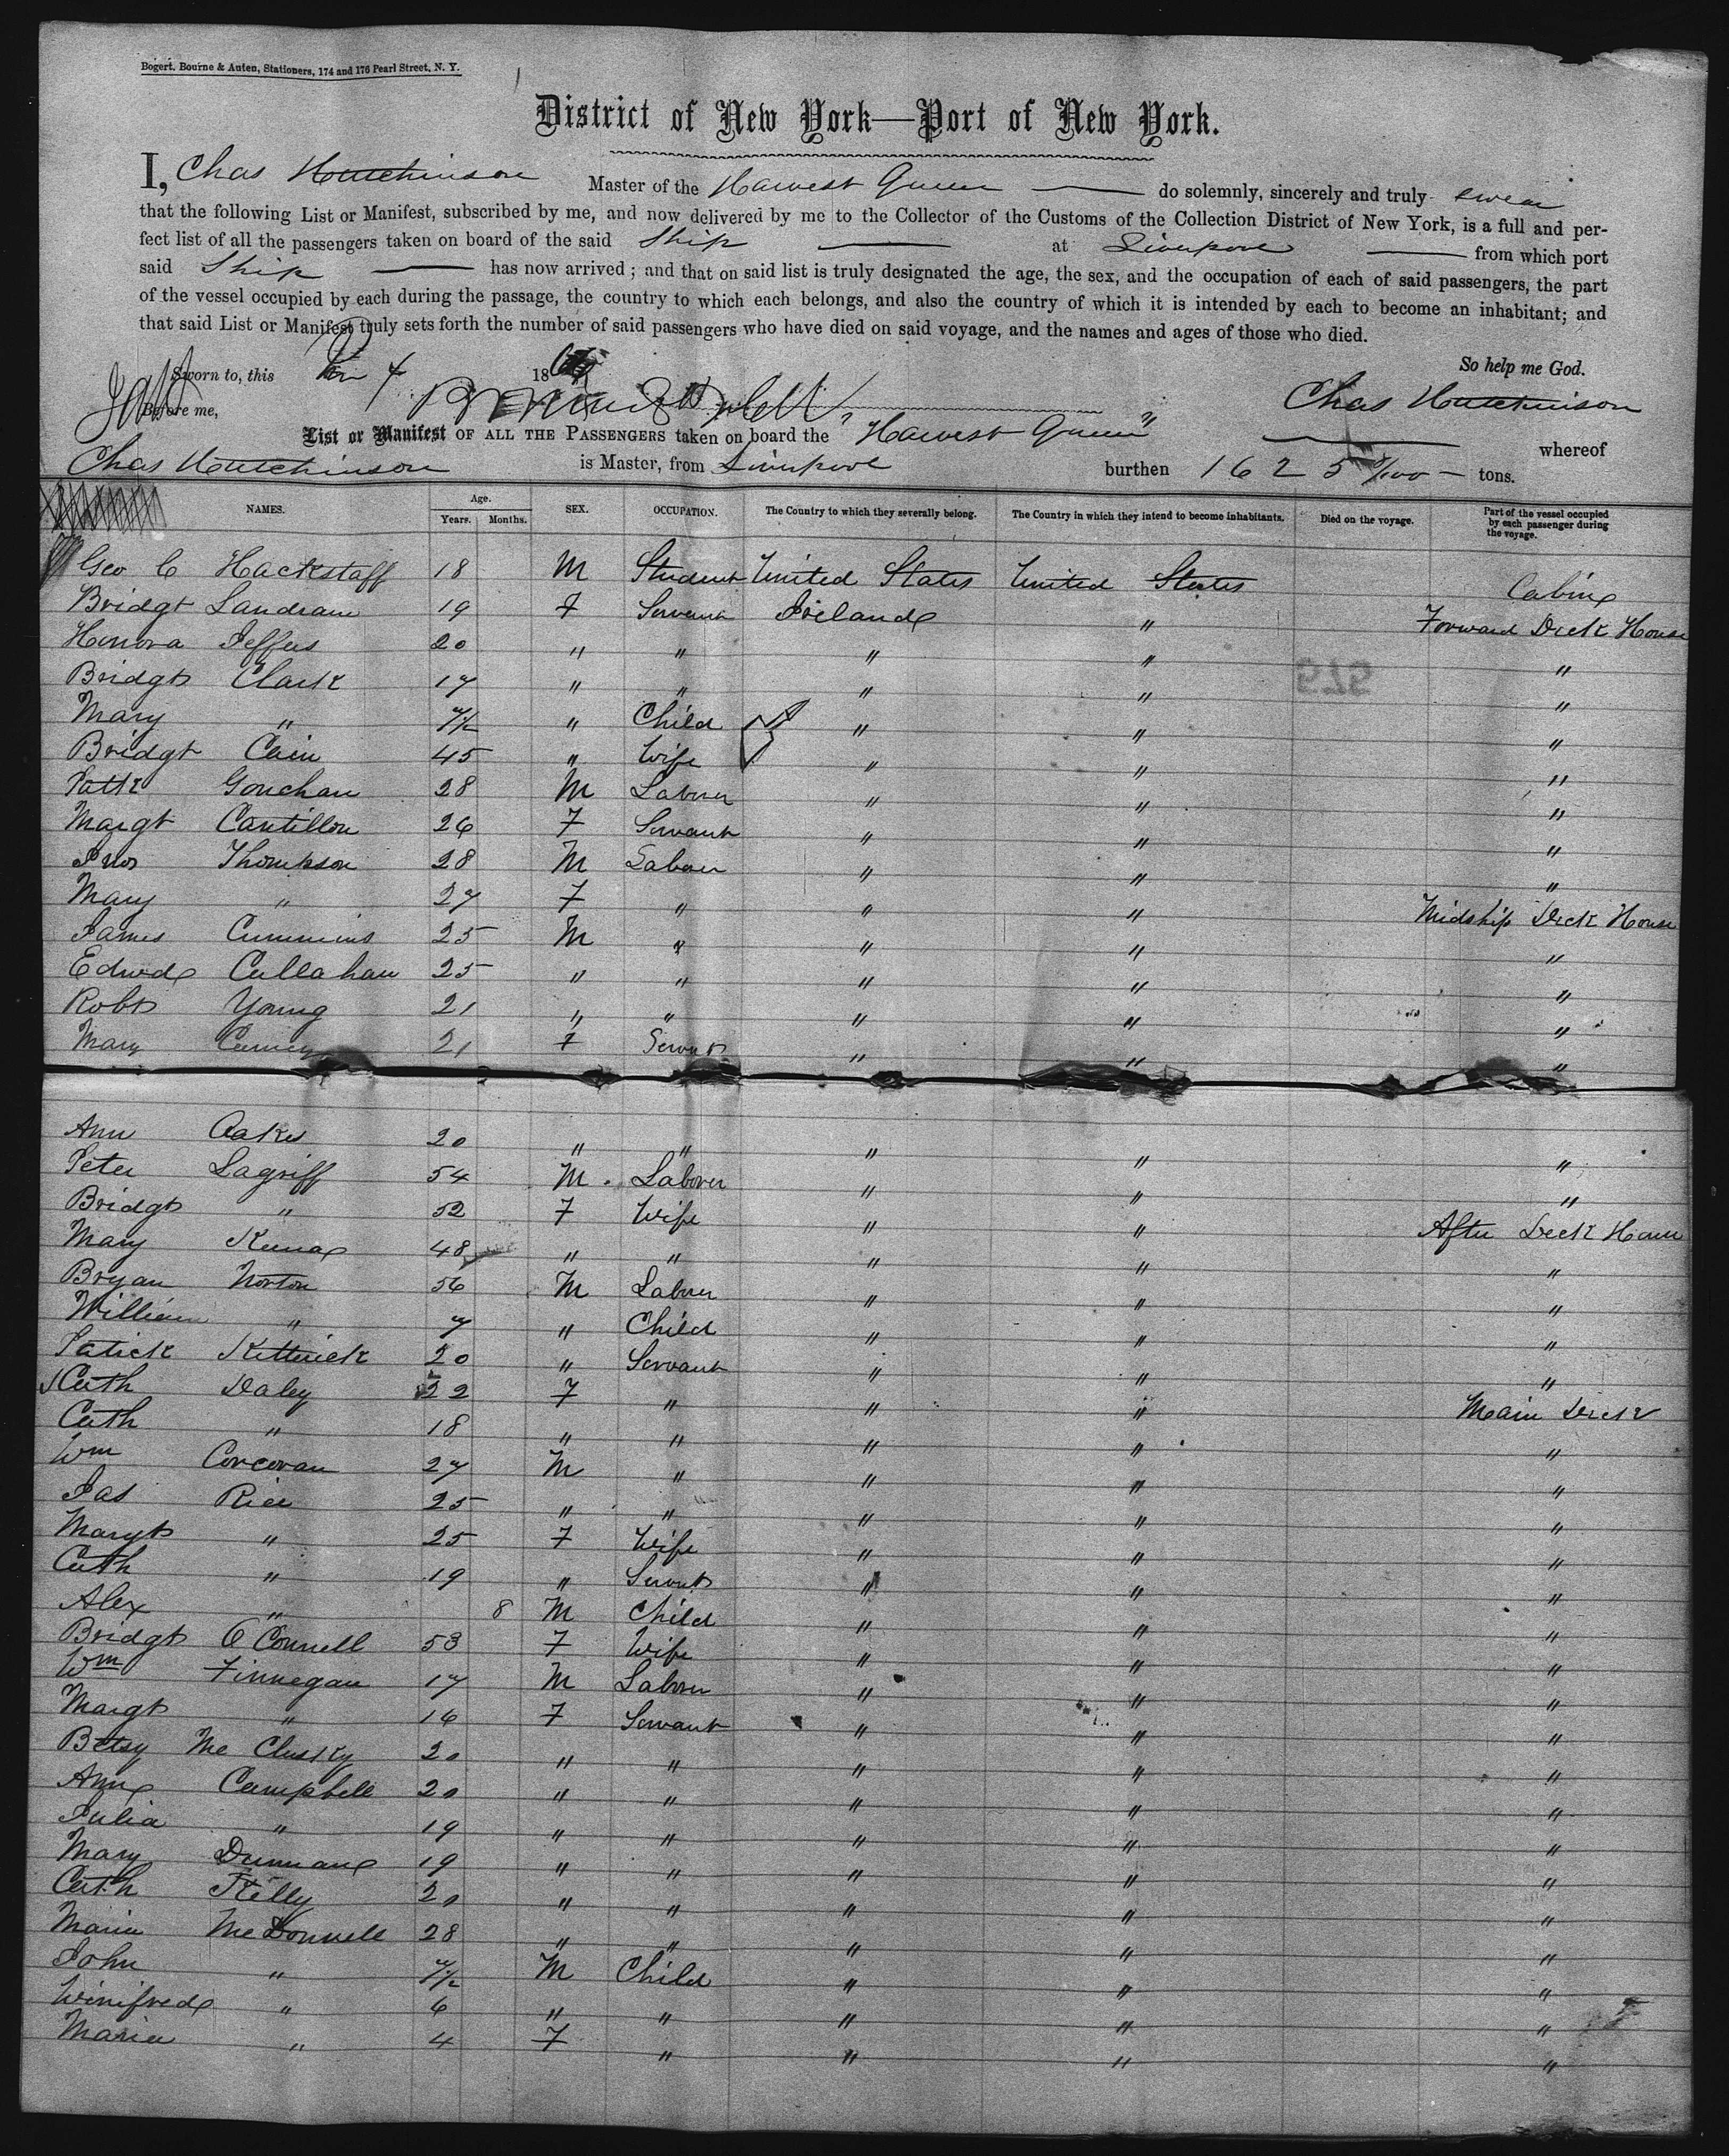 Bogert, Bourne & Auten, Stationers, 174 and 176 Pearl Street, N. Y.
District of New York—Port of New York.
I, Chas Hutchinson Master of the Harvest Queen do solemnly, sincerely and truly swear
that the following List or Manifest, subscribed by me, and now delivered by me to the Collector of the Customs of the Collection District of New York, is a full and per-
fect list of all the passengers taken on board of the said Ship at Liverpool from which port
said Ship has now arrived; and that on said list is truly designated the age, the sex, and the occupation of each of said passengers, the part
of the vessel occupied by each during the passage, the country to which each belongs, and also the country of which it is intended by each to become an inhabitant; and
that said List or Manifest truly sets forth the number of said passengers who have died on said voyage, and the names and ages of those who died.
So help me God.
Sworn to, this 4 18
Before me, Chas Hutchinson
List or Manifest OF ALL THE PASSENGERS taken on board the "Harvest Queen" whereof
Chas Hutchinson is Master, from Liverpool burthen 1625 /100 tons.
NAMES. Age. Years. Months. SEX. OCCUPATION. The Country to which they severally belong. The Country in which they intend to become inhabitants. Died on the voyage. Part of the vessel occupied by each passenger during the voyage.
Geo C Hackstaff 18 M Student United States United States Cabin
Bridgt Landram 19 F Servant Ireland " Forward Deck House
Honora Jeffers 20 " " " " "
Bridgt Clark 17 " " " " "
Mary " 7/12 " Child " " "
Bridgt Cain 45 " Wife " " "
Patk Gouchan 28 M Laborer " " "
Margt Cantillon 26 F Servant " " "
Thompson 28 M Laborer " " "
Mary " 27 F " " " Midship Deck House
James Cummins 25 M " " " "
Edwd Callahan 25 " " " " "
Robt Young 21 " " " " "
Mary 21 F Servant " " "
Ann Oakes 20 " " " " "
Peter Lagriff 54 M Laborer " " "
Bridgt " 52 F Wife " " After Deck House
Mary 48 " " " " "
Bryan Norton 56 M Laborer " " "
William " 7 " Child " " "
Patick Kittrick 20 " Servant " " "
Cath Daley 22 F " " " Main Deck
Cath " 18 " " " " "
Wm Corcoran 27 M " " " "
Jas Rice 25 " " " " "
Margt " 25 F Wife " " "
Cath " 19 " Servant " " "
Alex " 8 M Child " " "
Bridgt O Connell 53 F Wife " " "
Wm Finnegan 17 M Laborer " " "
Margt " 16 F Servant " " "
Betsy Mc Clusky 20 " " " " "
Ann Campbell 20 " " " " "
Julia " 19 " " " " "
Mary Dunnan 19 " " " " "
Cath Kelly 20 " " " " "
Maria Mc Donnell 28 " " " " "
John " 7/12 M Child " " "
Winifred " 6 " " " " "
Maria " 4 F " " " "